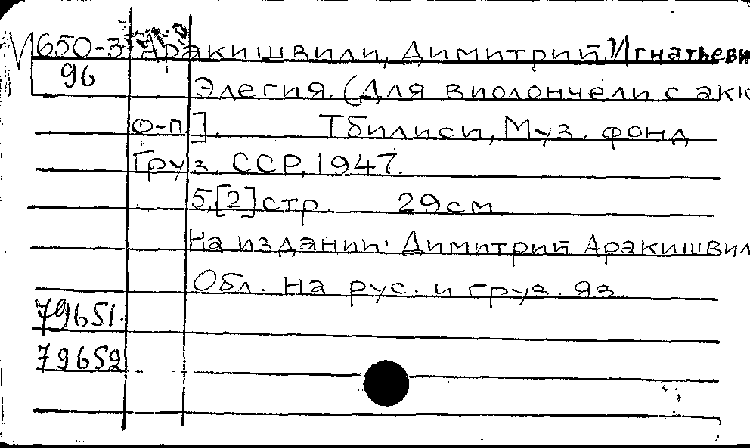 М650-3 Аракишвили, Димитрий Игнатьеви
96
Элегия. (Для виолончели с акк
ф-п]. Тбилиси, Муз. фонд
Груз. ССР, 1947.
5,[2]стр. 29см
На издании: Димитрий Аракишвил
Обл. на рус. и груз. яз.
79651.
79652